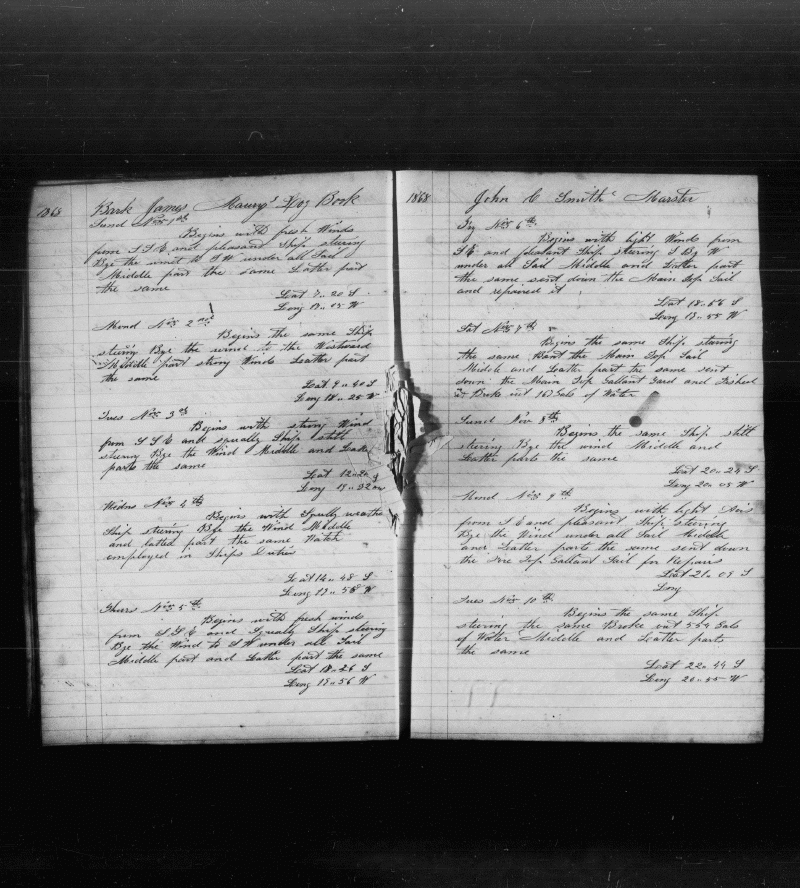 1868
Bark James Maury's Log Book
Sund Nov 1st
Begins with fresh Winds
from S S E and pleasant Ship stering
Bye the wind to S W under all Sail
Middle part the same Latter part
the same
Leat 7.. 20 S
Long 18.. 05 W
Mond Nov 2nd
Begins the same Ship
stering Bye the wind to the Westward
Middle part strong Winds Leatter part
the same
Leat 9.. 40 S
Long 18.. 25 W
Tues Nov 3rd
Begins with strong Wind
from S S E and squally Ship still
stering Bye the Wind Middle and Leatter
parts the same
Leat 12..
Long 19.. 32
Wedns Nov 4th
Begins with Sqully weather
Ship stering Bye the Wind Middle
and latted part the same Watch
employed in Ships Duties
Leat 14.. 48 S
Long 19.. 58 W
Thurs Nov 5th
Begins with fresh winds
from S S E and Squally Ship stering
Bye the Wind to S W under all Sail
Middle part and Latter part the same
Leat 18.. 26 S
Long 19.. 56 W
1868
John C Smith Marster
Fry Nov 6th
Begins with light Winds from
S E and pleasant Ship stering S By W
under all Sail Middle and Latter part
the same sent down the Main Top Sail
and repaired it
Leat 18.. 56 S
Long 19.. 55 W
Sat Nov 7th
Begins the same Ship stering
the same Bent the Main Top Sail
Middle and Leatter part the same sent
down the Main Top Gallant Yard and Fished
it Broke out 163 Gals of Water
Sund Nov 8th
Begins the same Ship still
stering Bye the wind Middle and
Leatter parts the same
Leat 20.. 24 S
Long 20.. 05 W
Mond Nov 9th
Begins with light Airs
from S E and pleasant Ship stering
Bye the Wind under all Sail Middle
and Leatter parts the same sent down
the Fore Top Gallant Sail for Repairs
Leat 21.. 05 S
Long
Tues Nov 10th
Begins the same Ship
stering the same Broke out 554 Gals
of Water Middle and Leatter parts
the same
Leat 22.. 44 S
Long 20.. 55 W